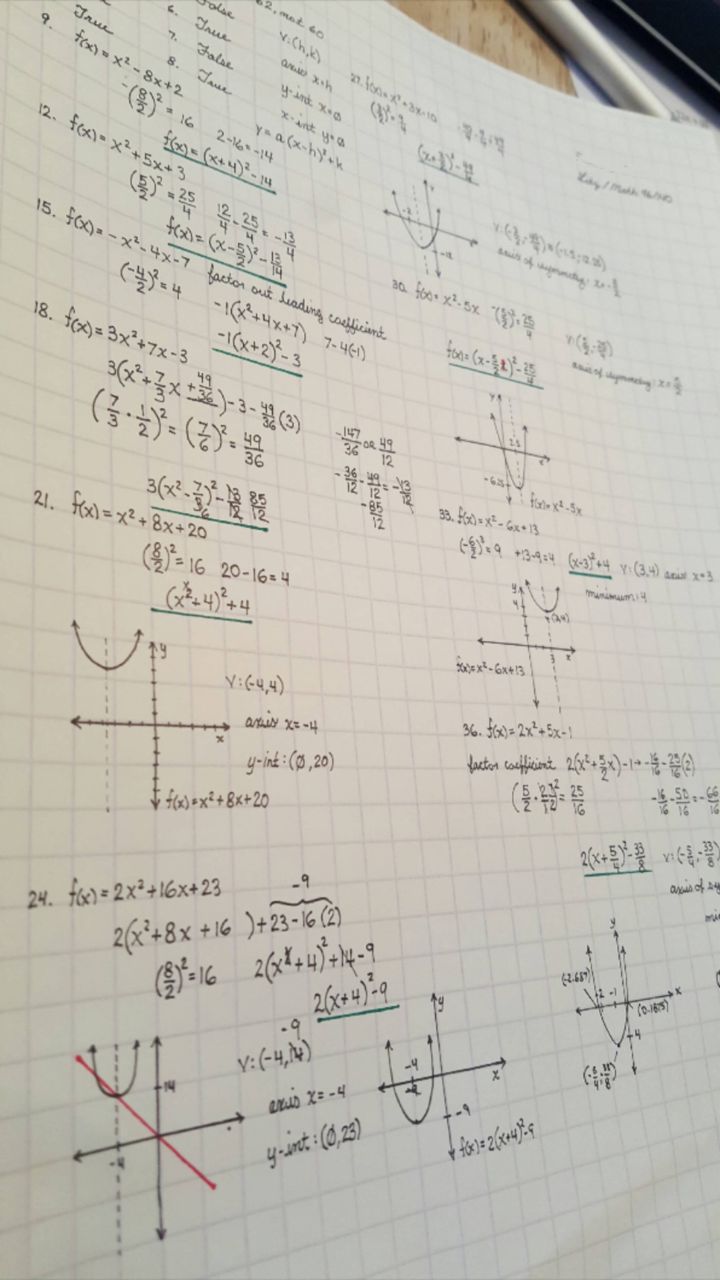 True
False
6. True
7. False
8. True
62, mat 60
v: (h,k)
axis x=h
y-int x=0
x-int y=0
y = a(x-h)²+k
9. f(x) = x² - 8x + 2
-(8/2)² = 16 2-16=-14
f(x) = (x+4)²-14
12. f(x) = x² + 5x + 3
(5/2)² = 25/4 12/4 - 25/4 = -13/4
f(x) = (x-5/2)² - 13/14
15. f(x) = -x²-4x-7 factor out leading coefficient
(-4/2)² = 4 -1(x²+4x+7) 7-4(-1)
-1(x+2)²-3
18. f(x) = 3x²+7x-3
3(x²+7/3x+49/36)-3-49/36(3)
(7/3·1/2)² = (7/6)² = 49/36
-147/36 or 49/12
-36/12-49/12=-13/12
-85/12
3(x²-7/6)²-13/12 85/12
21. f(x) = x²+8x+20
(8/2)²=16 20-16=4
(x+4)²+4
y
x
v:(-4,4)
axis x=-4
y-int:(0,20)
f(x)=x²+8x+20
24. f(x) = 2x²+16x+23
-9
2(x²+8x+16 )+23-16(2)
(8/2)²=16 2(x+4)²+14-9
2(x+4)²-9
-9
v:(-4,14)
axis x=-4
y-int:(0,23)
14
-4
y
-4
x
-9
f(x)=2(x+4)²-9
27. f(x)=x²+3x-10
(3/2)²=9/4
(x+3/2)²-49/4
y
-2
x
axis of symmetry: x=-3/2
30. f(x)=x²-5x -(5/2)²=25/4
f(x)=(x-5/2)²-25/4
v:(5/2,-25/4)
axis of symmetry: x=5/2
y
2.5
x
-6.25
f(x)=x²-5x
33. f(x)=x²-6x+13
(-6/2)²=9 +13-9=4 (x-3)²+4 v:(3,4) axis x=3
minimum: 4
y
4
(3,4)
3
x
f(x)=x²-6x+13
36. f(x)=2x²+5x-1
factor coefficient 2(x²+5/2x)-1→-16/16-25/16(2)
25/16
-16/16-50/16=-66/16
2(x+5/4)²-33/8 v:(-5/4,-33/8)
axis of
y
(-2.687)
-2 -1
x
(0.1875)
4
(-5/4,-33/8)